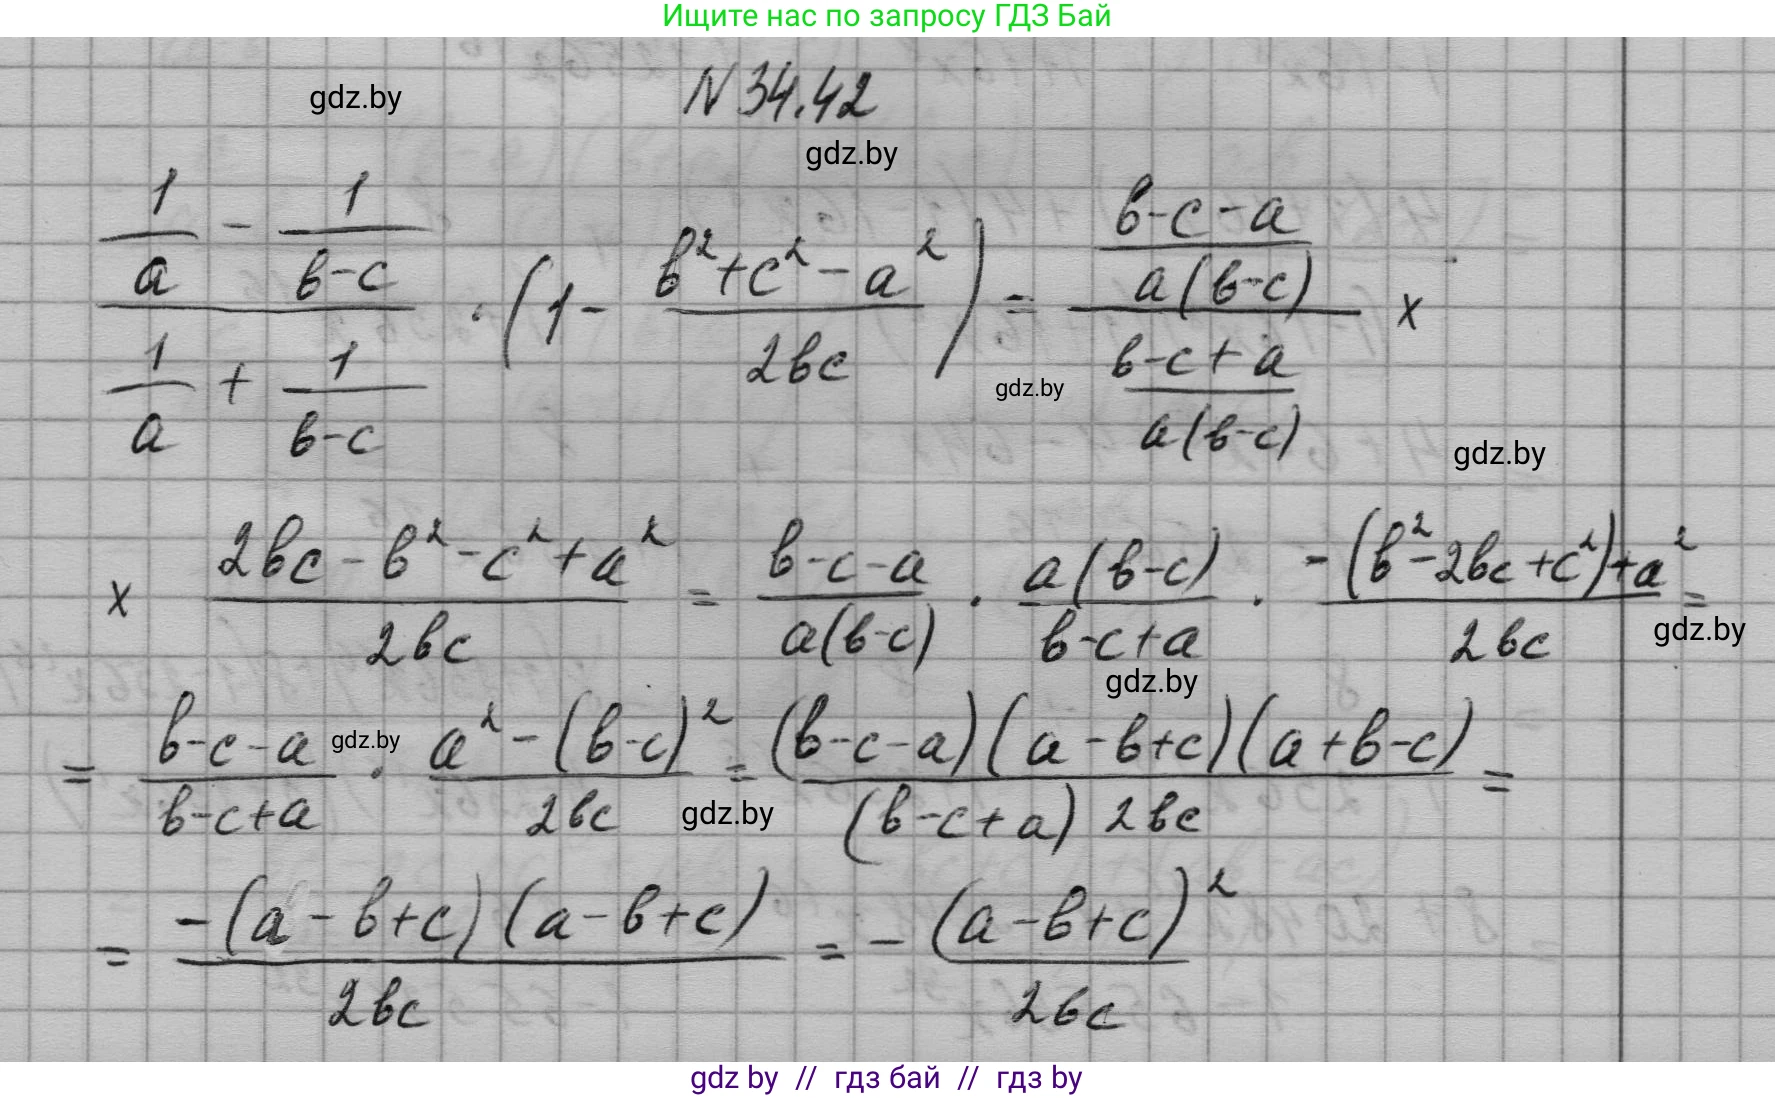 Ищите нас по запросу ГДЗ Бай
gdz.by
N 34.42
gdz.by
(1/a - 1/(в-c)) / (1/a + 1/(в-c)) · (1 - (в²+c²-a²)/(2вc)) = ((в-c-a)/(a(в-c))) / ((в-c+a)/(a(в-c))) ×
gdz.by
gdz.by
× (2вc-в²-c²+a²)/(2вc) = (в-c-a)/(a(в-c)) · (a(в-c))/(в-c+a) · (-(в²-2вc+c²)+a²)/(2вc) =
gdz.by
gdz.by
= (в-c-a)/(в-c+a) · (a²-(в-c)²)/(2вc) = ((в-c-a)(a-в+c)(a+в-c))/((в-c+a) 2вc) =
gdz.by
gdz.by
= (-(a-в+c)(a-в+c))/(2вc) = - (a-в+c)²/(2вc)
gdz by // гдз бай // гдз by